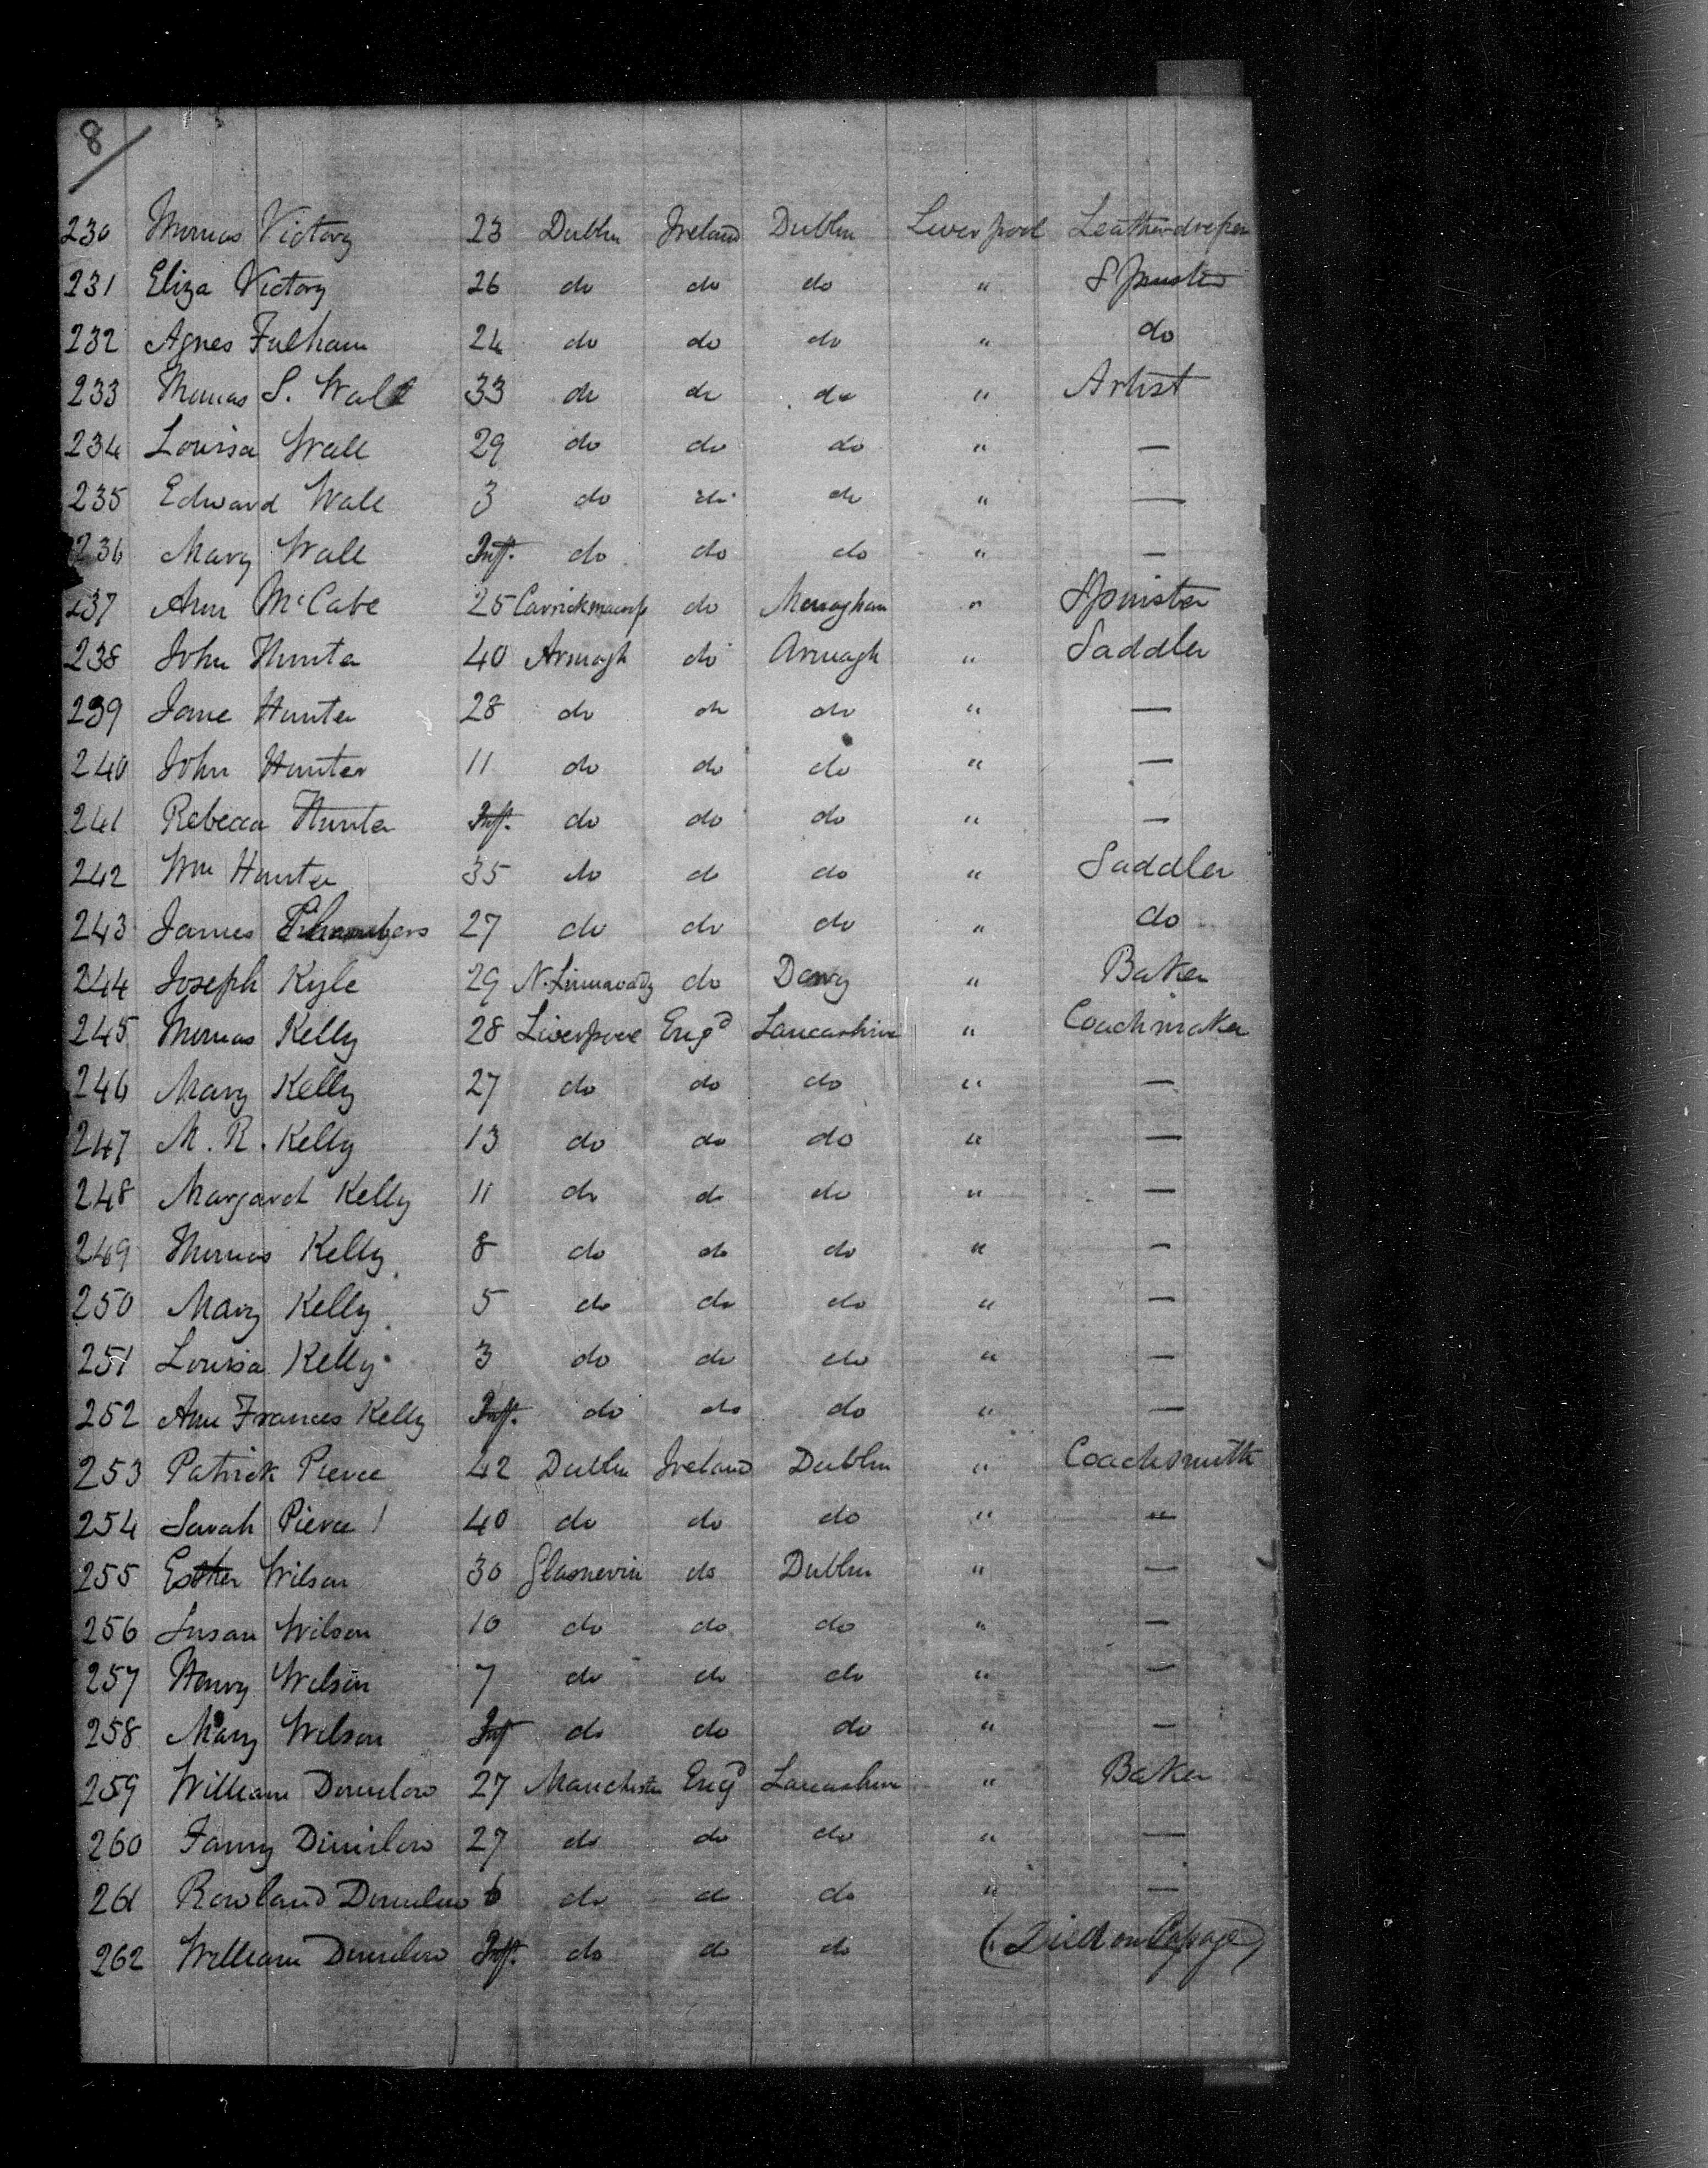 8/
230 Thomas Victory 23 Dublin Ireland Dublin Liverpool Leatherdresser
231 Eliza Victory 26 do do do " Spinster
232 Agnes Fulham 24 do do do " do
233 Thomas S. Wall 33 do do do " Artist
234 Louisa Wall 29 do do do " —
235 Edward Wall 3 do do do " —
236 Mary Wall Inft. do do do " —
237 Ann McCabe 25 Carrickmacross do Monaghan " Spinster
238 John Hunter 40 Armagh do Armagh " Saddler
239 Jane Hunter 28 do do do " —
240 John Hunter 11 do do do " —
241 Rebecca Hunter Inft. do do do " —
242 Wm Hunter 35 do do do " Saddler
243 James Chambers 27 do do do " do
244 Joseph Kyle 29 N. Limavady do Derry " Baker
245 Thomas Kelly 28 Liverpool Engd Lancashire " Coachmaker
246 Mary Kelly 27 do do do " —
247 M. R. Kelly 13 do do do " —
248 Margaret Kelly 11 do do do " —
249 Thomas Kelly 8 do do do " —
250 Mary Kelly 5 do do do " —
251 Louisa Kelly 3 do do do " —
252 Ann Frances Kelly Inft. do do do " —
253 Patrick Pierce 42 Dublin Ireland Dublin " Coachsmith
254 Sarah Pierce 40 do do do " —
255 Esther Wilson 30 Glasnevin do Dublin " —
256 Susan Wilson 10 do do do " —
257 Henry Wilson 7 do do do " —
258 Mary Wilson Inft do do do " —
259 William 27 Manchester Engd Lancashire " Baker
260 Fanny 27 do do do " —
261 Rowland 6 do do do " —
262 William Inft. do do do " (Died on)